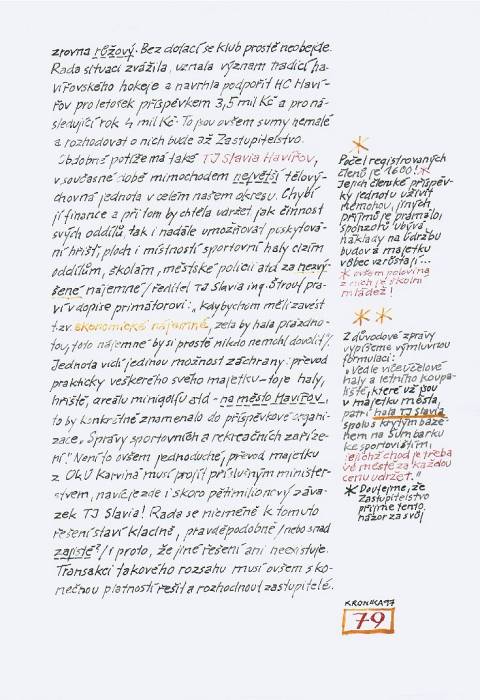 zrovna růžový. Bez dotací se klub prostě neobejde.
Rada situaci zvážila, uznala význam tradicí ha-
vířovského hokeje a navrhla podpořit HC Haví-
řov pro letošek příspěvkem 3,5 mil Kč a pro ná-
sledující rok 4 mil Kč. To jsou ovšem sumy nemalé
a rozhodovat o nich bude až Zastupitelstvo.
Obdobné potíže má také TJ Slavia Havířov,
v současné době mimochodem největší tělový-
chovná jednota v celém našem okresu. Chybí
jí finance a při tom by chtěla udržet jak činnost
svých oddílů, tak i nadále umožňovat poskytová-
ní hřišť, ploch i místností sportovní haly cizím
oddílům, školám, městské policii atd za nezvý-
šené nájemné/ ředitel TJ Slavia ing. Štrouf pra-
ví v dopise primátorovi: „Kdybychom měli zavést
t.zv. ekonomické nájemné, zela by hala prázdno-
tou, toto nájemné by si prostě nikdo nemohl dovolit/.
Jednota vidí jedinou možnost záchrany: převod
prakticky veškerého svého majetku – to je haly,
hřiště, areálu minigolfu atd – na město Havířov,
to by konkrétně znamenalo do příspěvkové organi-
zace „Správy sportovních a rekreačních zaříze-
ní! Není to ovšem jednoduché, převod majetku
z OkÚ Karviná musí projít příslušným minister-
stvem, navíc je zde i skoro pětimilionový záva-
zek TJ Slavia! Rada se nicméně k tomuto
řešení staví kladně, pravděpodobně /nebo snad
zajisté?/ s proto, že jiné řešení ani neexistuje.
Transakci takového rozsahu musí ovšem s ko-
nečnou platností řešit a rozhodnout zastupitelé.
Počet registrovaných
členů je 1600!
Jejich členské příspěv-
ky jednotu uživit
nemohou, jiných
příjmů je pramálo,
sponzorů ubývá,
náklady na údržbu
budov a majetku
vůbec vzrůstají...
* ovšem polovina
z nich je školní
mládež!
Z důvodové zprávy
vypíšeme výmluvnou
formulaci:
„Vedle víceúčelové
haly a letního koupa-
liště, které už jsou
v majetku města,
patří hala TJ Slavia
spolu s krytým bazé-
nem na Šumbarku
ke sportovištím,
jejichž chod je třeba
ve městě za každou
cenu udržet."
* Doufejme, že
Zastupitelstvo
přijme tento
názor za svůj
KRONIKA 97
79